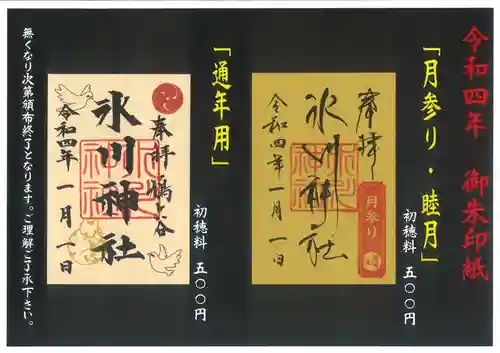 令和四年　御朱印紙
「月参り・睦月」
初穂料　五〇〇円
奉拝
氷川神社
令和四年一月一日
月参り
「通年用」
初穂料　五〇〇円
奉拝　鳩ヶ谷
氷川神社
令和四年一月一日
無くなり次第頒布終了となります。ご理解ご了承下さい。